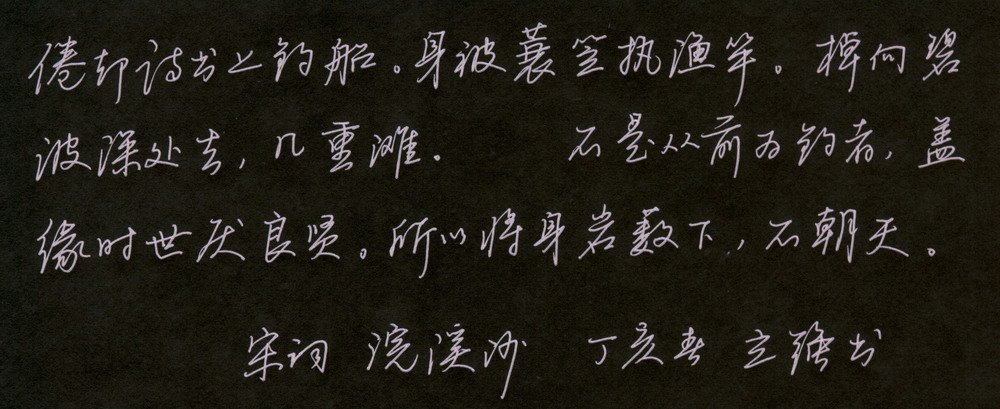 倦却诗书上钓船。身被蓑笠执渔竿。棹向碧
波深处去，几重滩。 不是从前为钓者，盖
缘时世厌良贤。所以将身岩薮下，不朝天。
宋词 浣溪沙 丁亥春 立强书